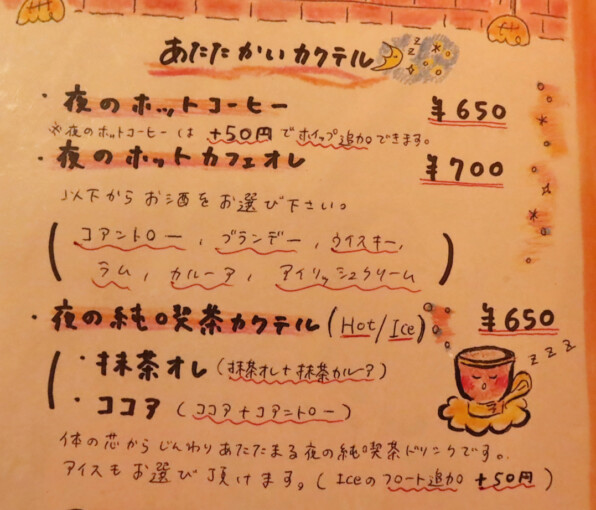 あたたかいカクテル
・夜のホットコーヒー ¥650
※夜のホットコーヒーは+50円でホイップ追加できます。
・夜のホットカフェオレ ¥700
以下からお酒をお選び下さい。
(コアントロー, ブランデー, ウイスキー,
ラム, カルーア, アイリッシュクリーム)
・夜の純喫茶カクテル(Hot/Ice) ¥650
・抹茶オレ(抹茶オレ+抹茶カルーア)
・ココア(ココア+コアントロー)
zzz
体の芯からじんわりあたたまる夜の純喫茶ドリンクです。
アイスもお選び頂けます。(Iceのフロート追加+50円)